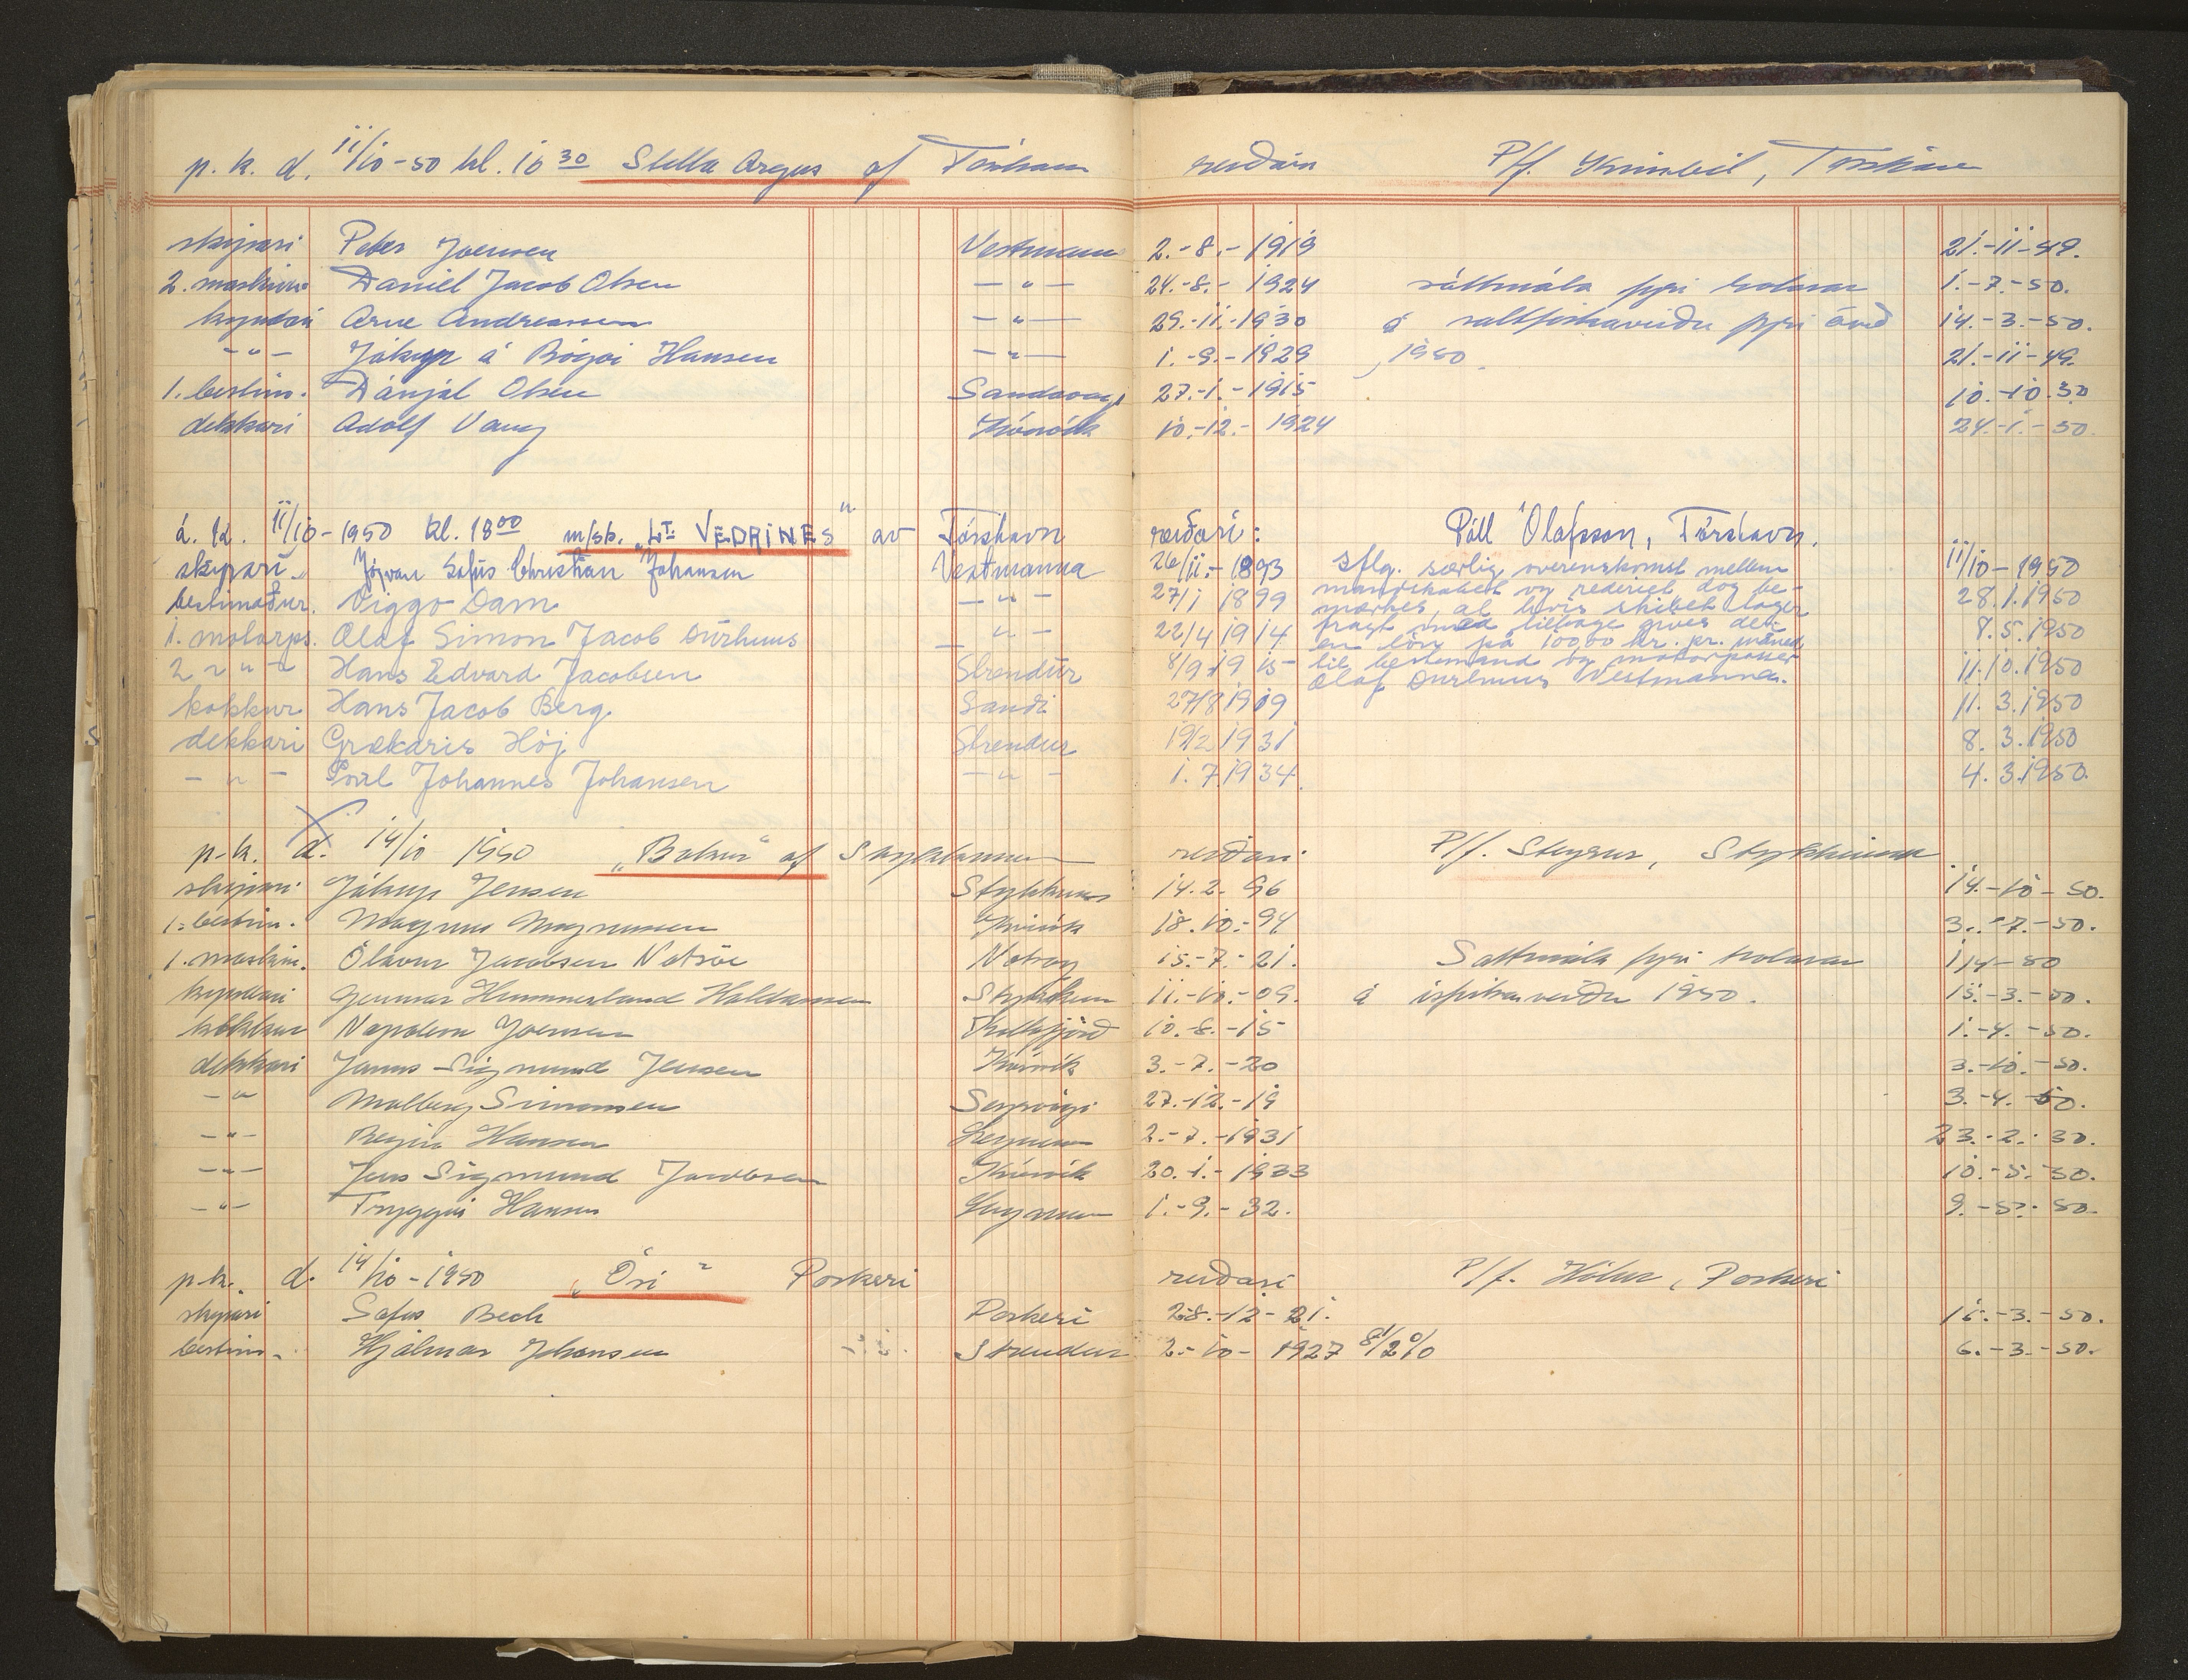 p. k. d. 11/10-50 kl. 10 30 Stella Argus af Tórshavn reiðarin P/f. Tórshavn
skipari Peter Joensen Vestmanna 2.-8.-1919 21.-11-49.
2. maskinm. Daniel Jacob Olsen -"- 24.-8.-1924 sáttmála fyri trolarar 1.-7.-50.
kyndari Arne Andreassen -"- 29.-11.-1930 á saltfiskaveiðu fyri árið 14.-3.-50.
-"- Jákup á Bøgjei Hansen -"- 1.-9.-1929 1950. 21.-11-49.
1. bestim. Dánjal Olsen Sandavági 27.-1.-1915 10.-10.50
dekkari Adolf Vang Kvívík 10.-12.-1924 24.-1.-50.
á. k. 11/10-1950 kl. 18 00 m/sk. „Lt. VEDRINES" av Tórshavn reiðari: Páll Ólafsson, Tórshavn.
skipari Jógvan Sofus Christian Johansen Vestmanna 26/11.-1893 Iflg. særlig overenskomst mellem 11/10-1950
bestimaður. Viggo Dam -"- 27/1 1899 mandskabet og rederiet dog be- 28.1.1950
mærkes, at hvis skibet tager
1. motorps. Olaf Simon Jacob Durhuus -"- 22/4 1914 fragt med tilbage gives der 8.5.1950
en løn på 100,00 kr. pr. måned
2 -"- Hans Edvard Jacobsen Strendur 8/9 1915 til bestmand og motorpasser 11.10.1950
Olaf Durhuus Vestmanna.
kokkur Hans Jacob Berg Sandi 27/8 1919 11.3.1950
dekkari Grækaris Høj Strendur 19/2 1931 8.3.1950
-"- Poul Johannes Johansen -"- 1.7.1934. 4.3.1950.
p.k. d. 14/10 1950 af reiðari P/f.
skipari Jákup Jensen 14.2.96 14.-10-50.
1. bestim. Magnus Magnussen Kvívík 18.10.-94 3.-7.-50.
1. maskin. Ólavur Jacobsen Nolsøe Nolsoy 15.-7.-21. Sáttmála fyri trolarar 1/4-50
kyndari Gunnar 11.-10.-09. á ísfiskaveiðu 1950. 15.-3.-50.
kokkur Napoleon Joensen Kollafjørð 10.-8.-15 1.-4.-50.
dekkari Janus Sigmund Jensen Kvívík 3.-7.-20 3.-10.-50.
-"- Malberg Simonsen Sørvági 27.-12.-19 3.-4.-50.
-"- Regin Hansen Leynum 2.-7.-1931 23.-2.-50.
-"- Jens Sigmund Jacobsen Kvívík 20.-1.-1933 10.-5.-50.
-"- Tryggvi Hansen Leynum 1.-9.-32. 9.-5.-50.
p.k. d. 14/10-1950 „Ori" Porkeri reiðari P/f. Porkeri
skipari Sofus Bech Porkeri 28.-12-21. 16.-3.-50.
bestim. Hjálmar Johansen Strendur 2.-10-1927 8 1/2 % 6.-3.-50.